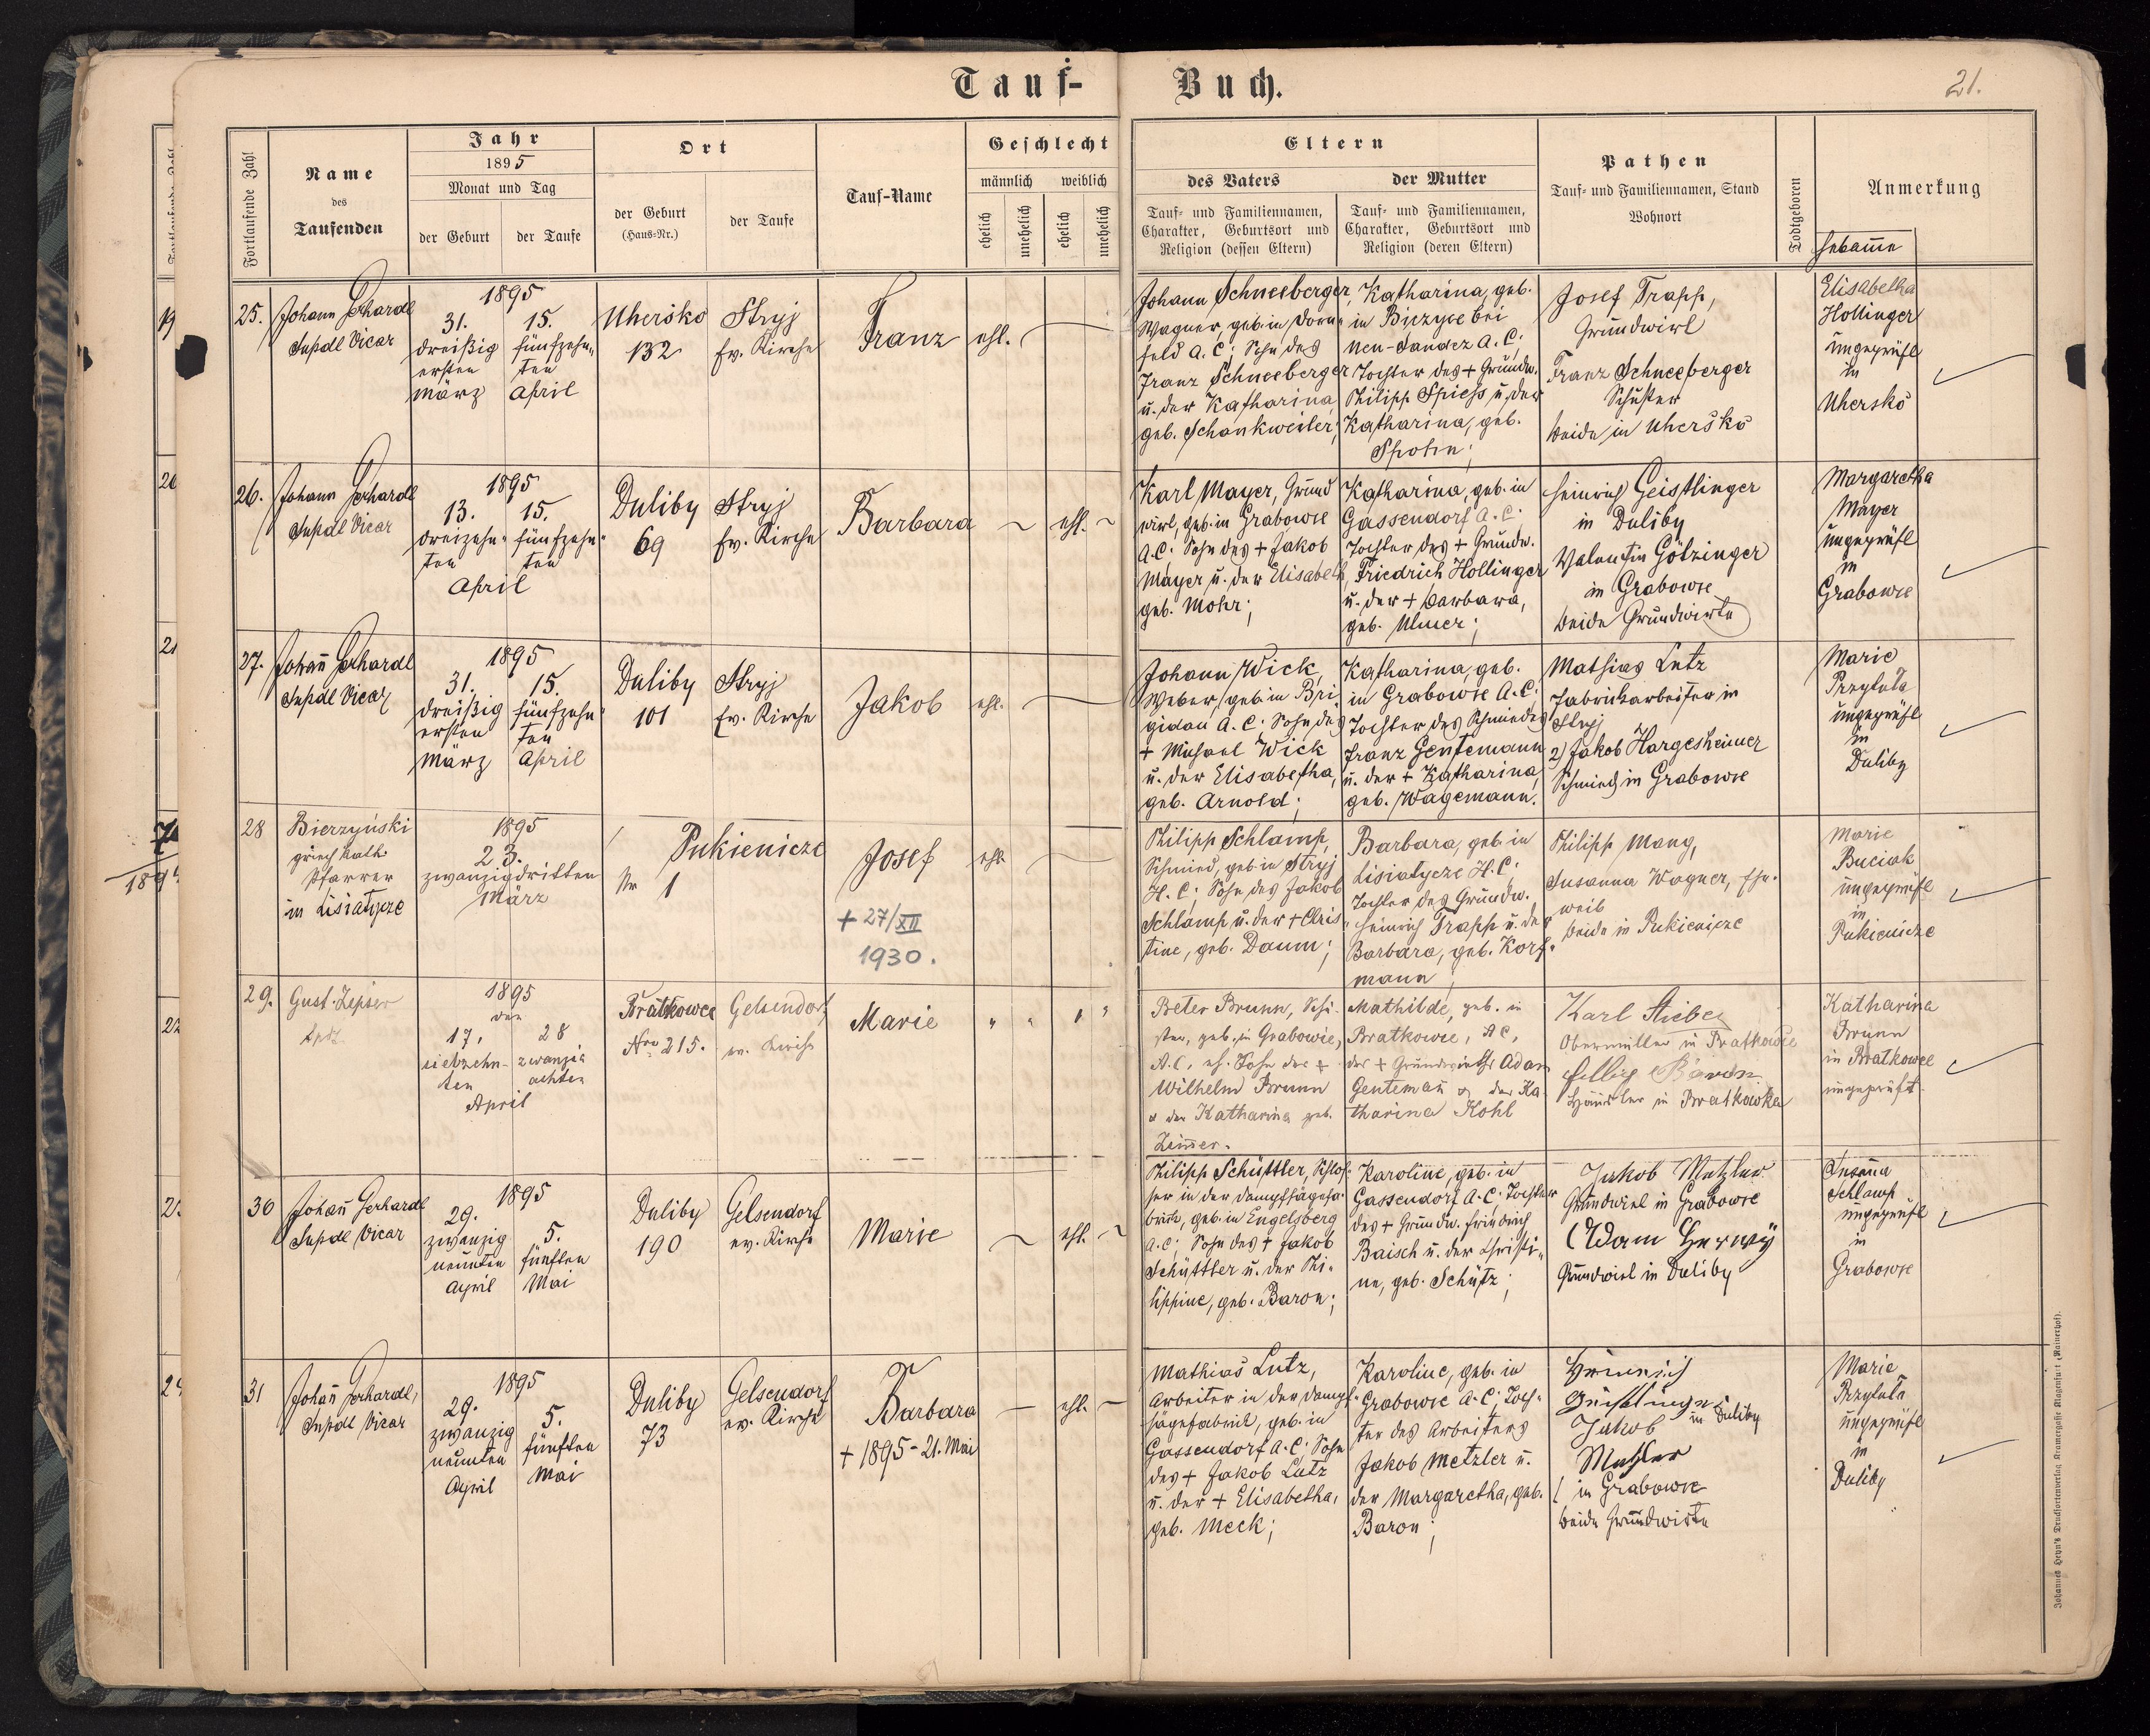 Tauf-Buch.
21.
Fortlaufende Zahl
Name
des
Taufenden
Jahr
1895
Monat und Tag
der Geburt
der Taufe
Ort
der Geburt
(Haus-Nr.)
der Taufe
Tauf-Name
Geschlecht
männlich weiblich
ehelich
unehelich
ehelich
unehelich
Eltern
des Vaters
Tauf- und Familiennamen,
Charakter, Geburtsort und
Religion (dessen Eltern)
der Mutter
Tauf- und Familiennamen,
Charakter, Geburtsort und
Religion (deren Eltern)
Pathen
Tauf- und Familiennamen, Stand
Wohnort
Todtgeboren
Anmerkung
Hebam̄e
25.
Johann Gerhardt
Supdl Vicar
1895
31.
dreißig
ersten
März
15.
fünfzehn-
ten
April
Uhersko
132
Stryj
Ev. Kirche
Franz
ehl.
Johann Schneeberger,
Wagner, geb. in Dorn-
feld A. C; Sohn des
Franz Schneeberger
u. der Katharina
geb. Schankweiler;
Katharina, geb.
in Biczyce bei
Neu-Sandez A. C;
Tochter des + Grundw.
Philipp Spiess u. der
Katharina, geb.
Josef Trapp,
Grundwirt
Franz Schneeberger
Schuster
beide in Uhersko
Elisabetha
Hollinger
ungeprüft
in
Uhersko
26.
Johann Gerhardt
Supdl Vicar
1895
13.
dreizehn-
ten
15.
fünfzehn-
ten
April
Duliby
69
Stryj
Ev. Kirche
Barbara
ehl.
Karl Mayer, Grund
wirt, geb. in Grabowce
A.C; Sohn des + Jakob
Mayer u. der Elisabeth,
geb. Mohr;
Katharina, geb. in
Gassendorf A. C;
Tochter des + Grundw.
Friedrich Hollinger
u. der + Barbara,
geb. Ulmer;
Heinrich Geistlinger
in Duliby
Valentin Götzinger
in Grabowce
beide Grundwirte
Margaretha
Mayer
ungeprüft
in
Grabowce
27.
Johan̄ Gerhardt
Supdl Vicar
1895
31.
dreißig
ersten
März
15.
fünfzehn-
ten
April
Duliby
101
Stryj
Ev. Kirche
Jakob
ehl.
Johann Wick,
Weber, geb. in Bri-
gidau A. C; Sohn des
+ Michael Wick
u. der Elisabetha,
geb. Arnold;
Katharina, geb.
in Grabowce A. C;
Tochter des Schmiedes
Franz Gentemann
u. der + Katharina
geb. Wagemann.
Mathias Lutz
Fabriksarbeiter in
Stryj
2) Jakob Hargesheimer
Schmied in Grabowce
Marie
Przytuła
ungeprüft
in
Duliby
28
Bierzyński
griech kath.
Pfarrer
in Lisiatycze
1895
23.
zwanzigdritten
März
Pukienicze
Nr 1
Josef
+ 27/XII
1930.
ehl.
Philipp Schlamp,
Schmied, geb. in Stryj
H. C; Sohn des Jakob
Schlamp u. der + Chris-
tine, geb. Daum;
Barbara, geb. in
Lisiatycze H. C;
Tochter des Grundw.
Heinrich Trapp u. der
Barbara, geb. Korf-
mann
Philipp Mang,
Susanna Wagner, Ehe-
weib
beide in Pukienicze
Marie
Buciak
ungeprüft
in
Pukienicze
29.
Gust. Zipser
1895
den
17.
siebzehn-
ten
28
zwanzig
achten
April
Bratkowce
Nro 215.
Gelsendorf
ev. Kirche
Marie
Peter Brunn, Schu-
ster, geb. in Grabowce,
A. C, eh. Sohn des +
Wilhelm Brunn
u der Katharina geb.
Zim̄er.
Mathilde, geb. in
Bratkowce, A C,
des + Grundwirths Adam
Genteman̄ u der Ka-
tharina Kohl
Karl Stieber
Obermüller in Bratkowce
Häusler in Bratkowce
Katharina
Brunn
in Bratkowce
ungeprüft.
30
Johan̄ Gerhardt
Supdl Vicar
1895
29.
zwanzig
neunten
April
5.
fünften
Mai
Duliby
190
Gelsendorf
ev. Kirche
Marie
ehl.
Philipp Schüttler, Schlos-
ser in der Dampfsägefa-
brik, geb. in Engelsberg
A. C; Sohn des + Jakob
Schüttler u. der Phi-
lippine, geb. Baron;
Karoline, geb. in
Gassendorf A. C; Tochter
des + Grundw. Friedrich
Baisch u. der Christi-
ne, geb. Schütz;
Jakob Metzler
Grundwirt in Grabowce
Adam
Grundwirt in Duliby
Susan̄a
Schlamp
ungeprüft
in
Grabowce
31
Johan̄ Gerhardt,
Supdl Vicar
1895
29.
zwanzig
neunten
April
5.
fünften
Mai
Duliby
73
Gelsendorf
ev. Kirche
Barbara
+ 1895 - 21. Mai
ehl.
Mathias Lutz,
Arbeiter in der Dampf-
sägefabrik, geb. in
Gassendorf A. C; Sohn
des + Jakob Lutz
u. der + Elisabetha,
geb. Meck;
Karoline, geb. in
Grabowce A. C; Toch-
ter des Arbeiters
Jakob Metzler u.
der Margaretha, geb.
Baron;
Heinrich
Geistlinger
in Duliby
Jakob
Metzler
in Grabowce
beide Grundwirte
Marie
Przytuła
ungeprüft
in
Duliby
19
20
21
22
23
24
Johannes Heyn's Drucksortenverlag Kramergasse Klagenfurt (Rainerhof).